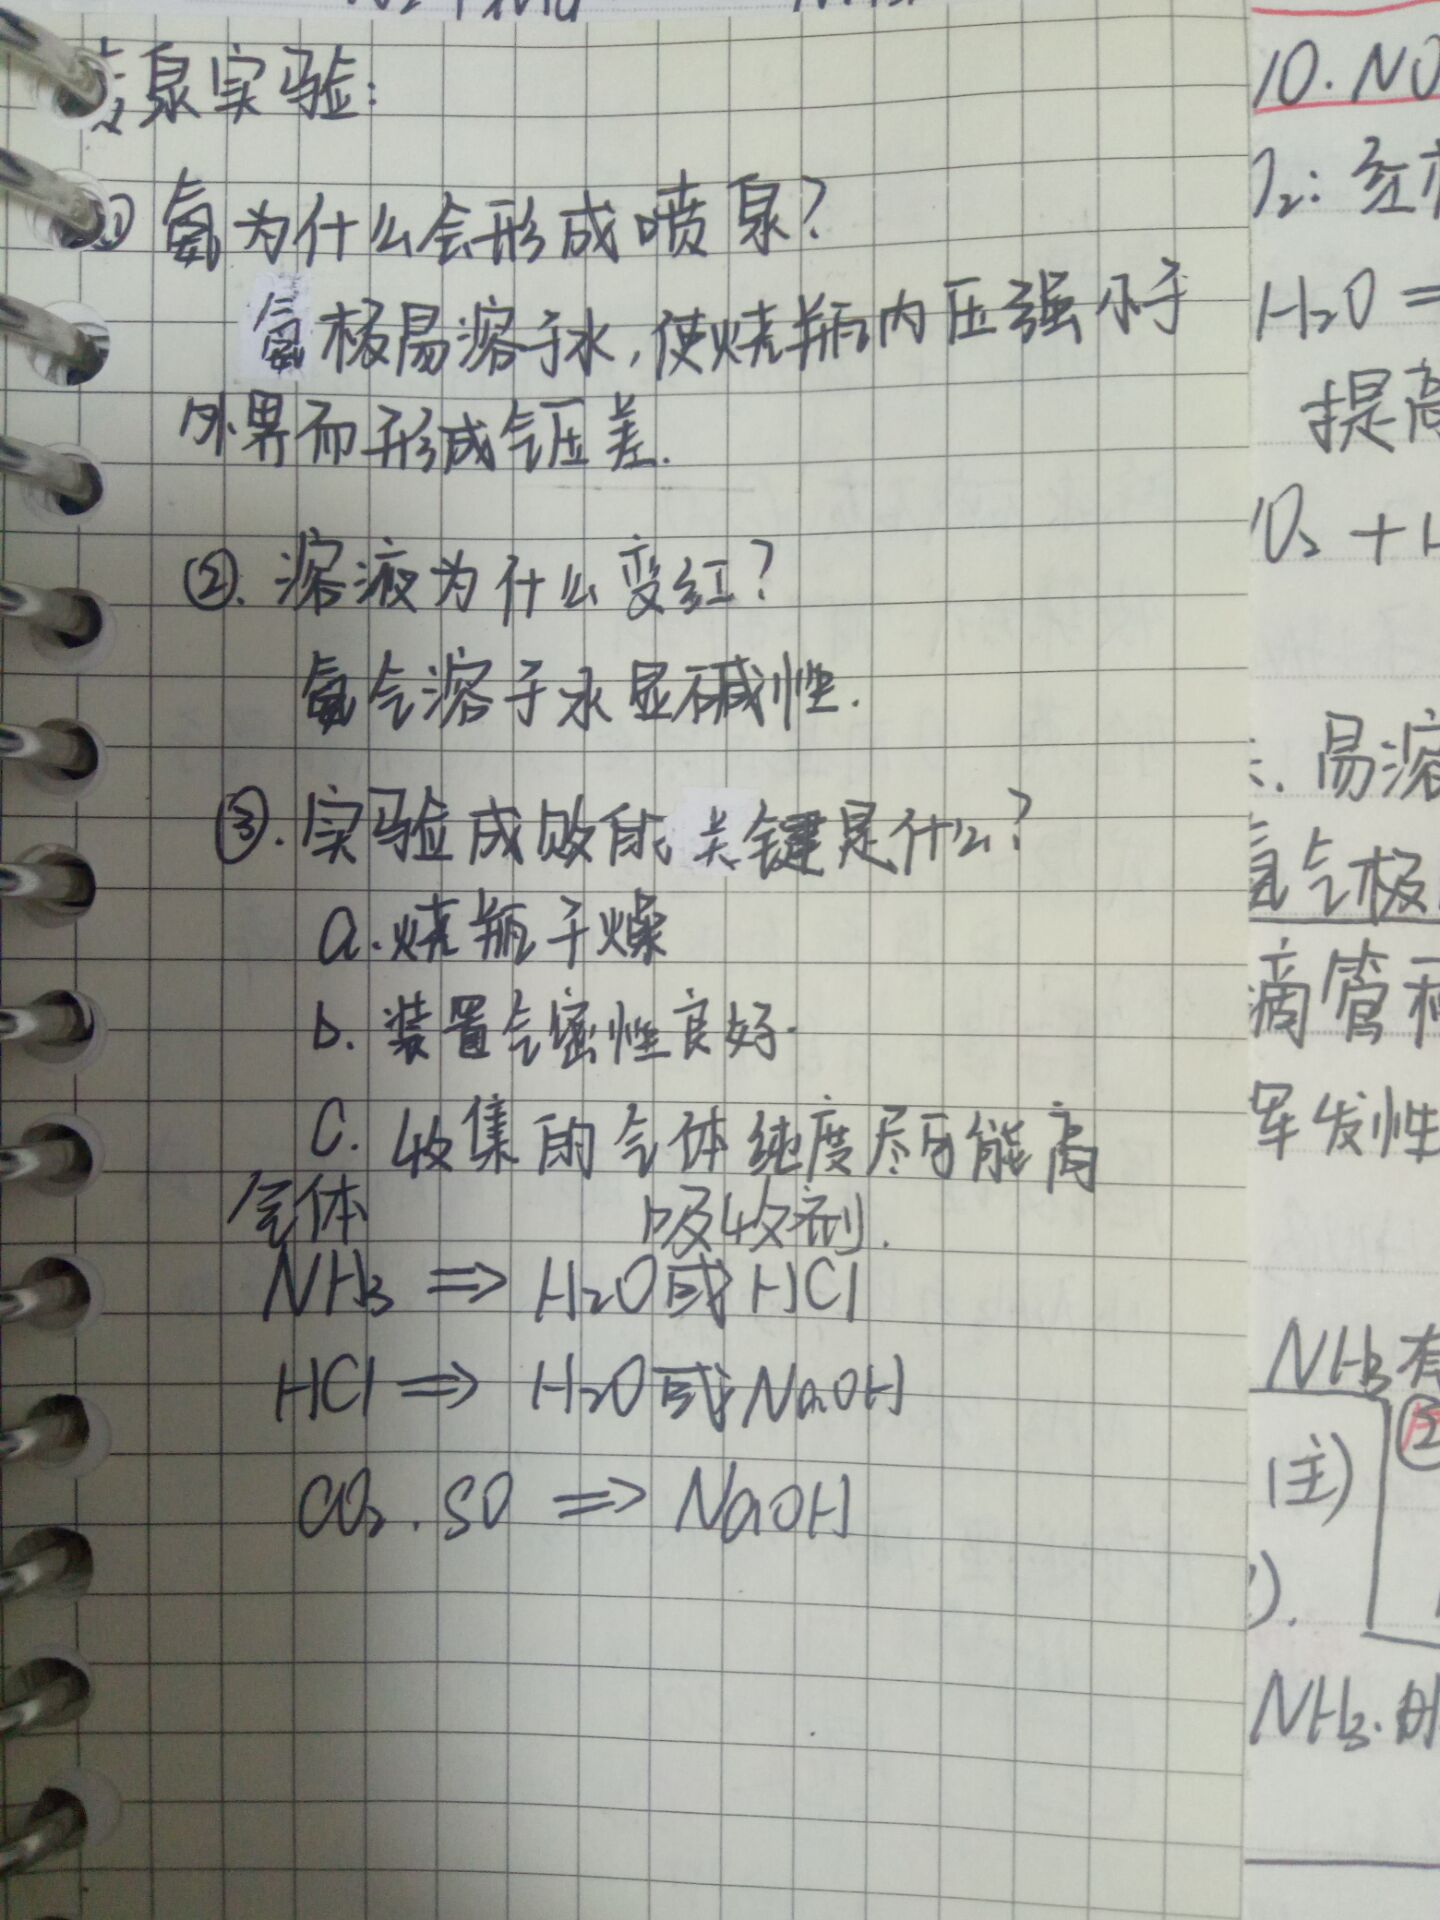 泉实验:
① 氨为什么会形成喷泉?
氨极易溶于水,使烧瓶内压强小于
外界而形成气压差.
②. 溶液为什么变红?
氨气溶于水显碱性.
③. 实验成败的关键是什么?
a. 烧瓶干燥
b. 装置气密性良好.
C. 收集的气体纯度尽可能高
气体 吸收剂.
NH3 ⇒ H2O或HCl
HCl ⇒ H2O或NaOH
CO2. SO ⇒ NaOH
10. NO
2: 红
H2O =
提高
O2 +
易溶
氨气极
滴管和
挥发性
NH3有
(主)
②
).
NH3.的